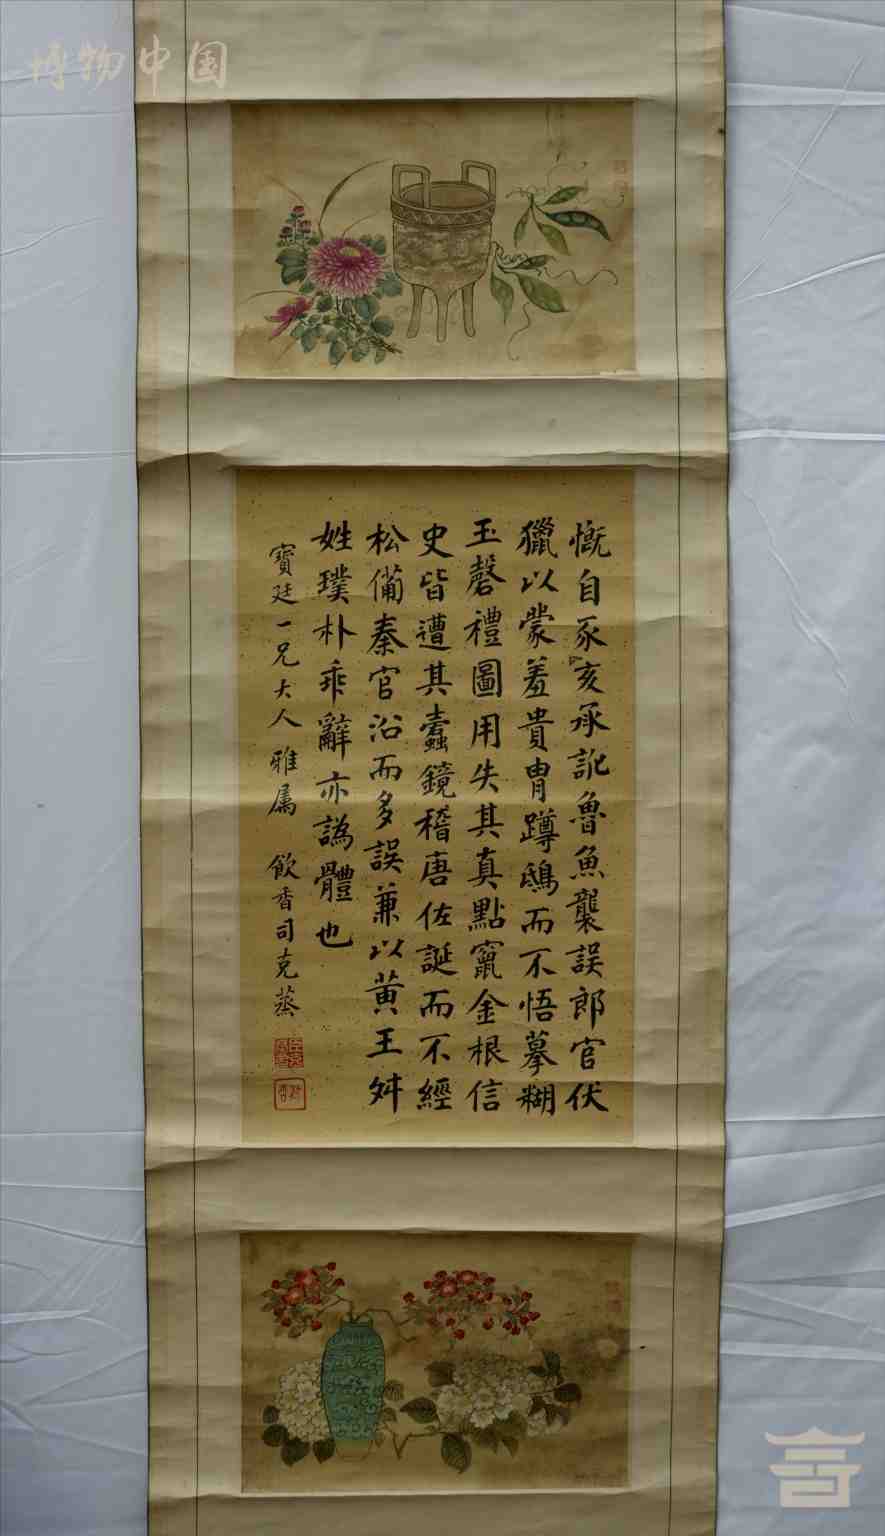 博物中国
慨自豕亥承訛魯魚襲誤郎官伏
獵以蒙羞貴冑蹲鴟而不悟摹糊
玉磬禮圖用失其真點竄金根信
史皆遭其蠹鏡稽唐佐誕而不經
松備秦官沿而多誤兼以黄王舛
姓璞朴乖辭亦譌體也
寶廷一兄大人雅属 飲香司克蒸